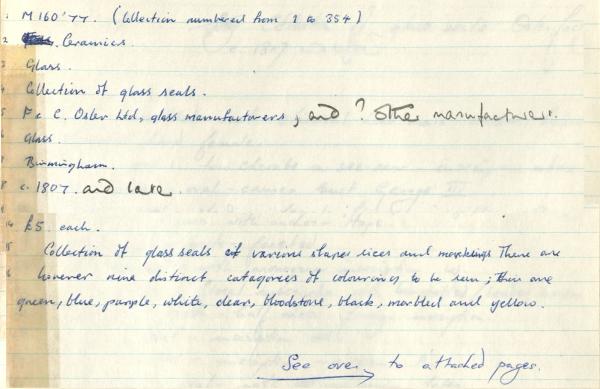 1 M160'77. (Collection numbered from 1 to 354)
2 Ceramics.
3 Glass.
4 Collection of glass seals.
5 F & C. Osler Ltd, glass manufacturers, and ? other manufacturers.
6 Glass.
7 Birmingham.
8 c. 1807. and later.
9
14 £5. each.
15 Collection of glass seals of various shapes sices and markings There are
16 however nine distinct catagories of colourings to be seen; these are
green, blue, purple, white, clear, bloodstone, black, marbled and yellow.
See over to attached pages.